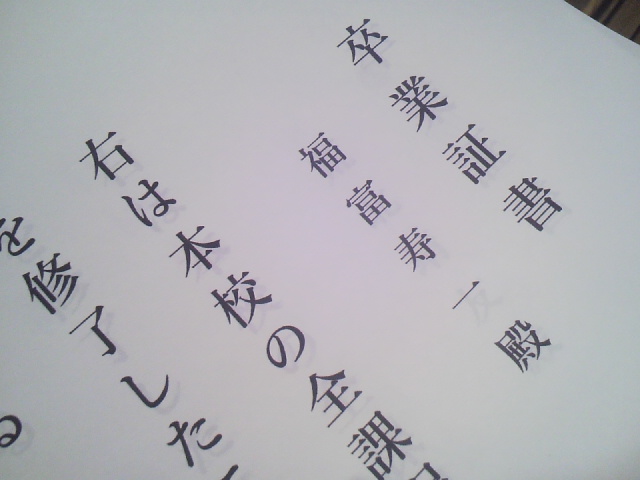 卒業証書
福富寿一殿
右は本校の全課
を修了した
る